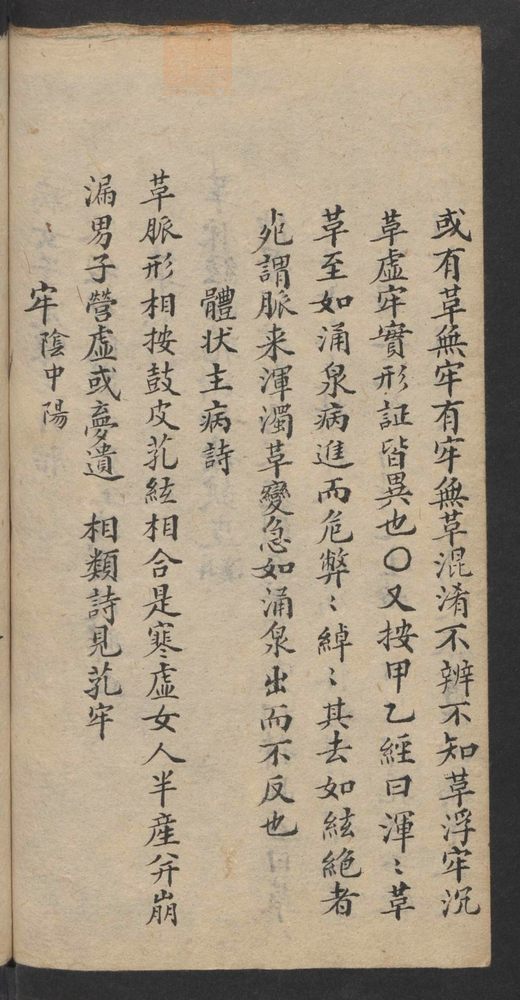 或有草無牢有牢無草混淆不辨不知草浮牢沉
草虛牢實形証皆異也〇又按甲乙經曰渾〻草
草至如涌泉病進而危弊〻綽〻其去如絃絶者
死謂脈来渾濁草變急如涌泉出而不反也
體状主病詩
草脈形相按鼓皮芤絃相合是寒虛女人半產并崩
漏男子營虛或夣遺 相類詩見芤牢
牢 陰中陽